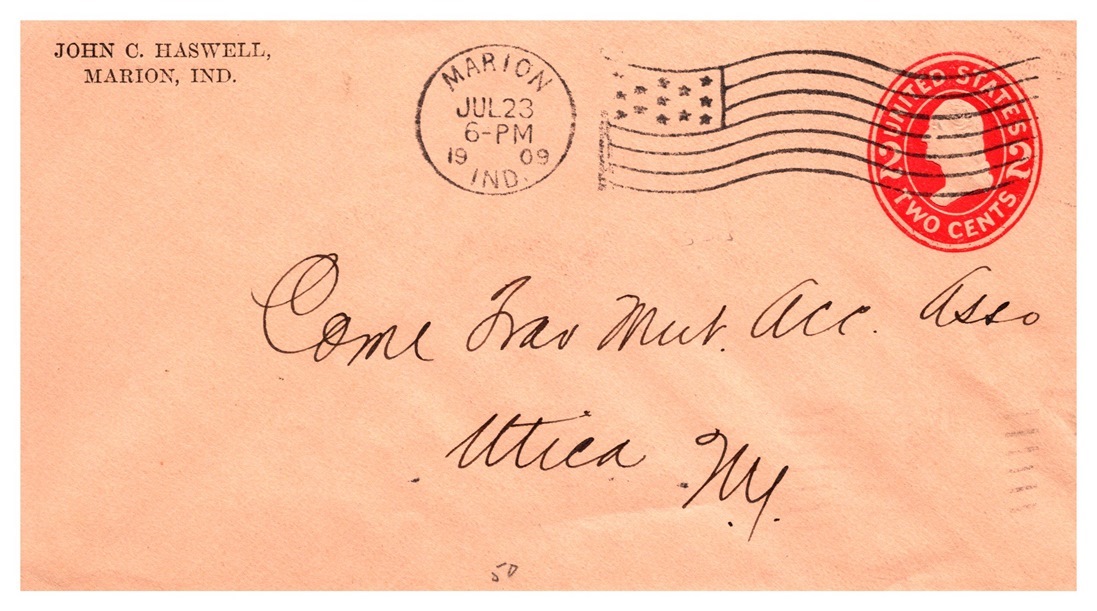 JOHN C. HASWELL,
MARION, IND.
MARION
JUL 23
6-PM
19 09
IND.
UNITED STATES
2 2
TWO CENTS
Come Trav Mut. Acc. Asso
Utica N.Y.
50